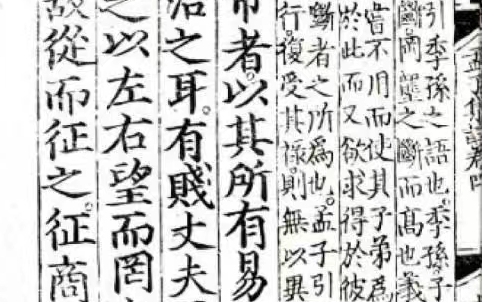 孟子集註卷四
引季孫之語也。季孫子
斷岡壟之斷而高也義
嘗不用而使其子弟爲
於此而又欲求得於彼
斷者之所爲也。孟子引
行。復受其祿。則無以異
市者。以其所有易
治之耳。有賤丈夫
之以左右望而罔
故從而征之。征商